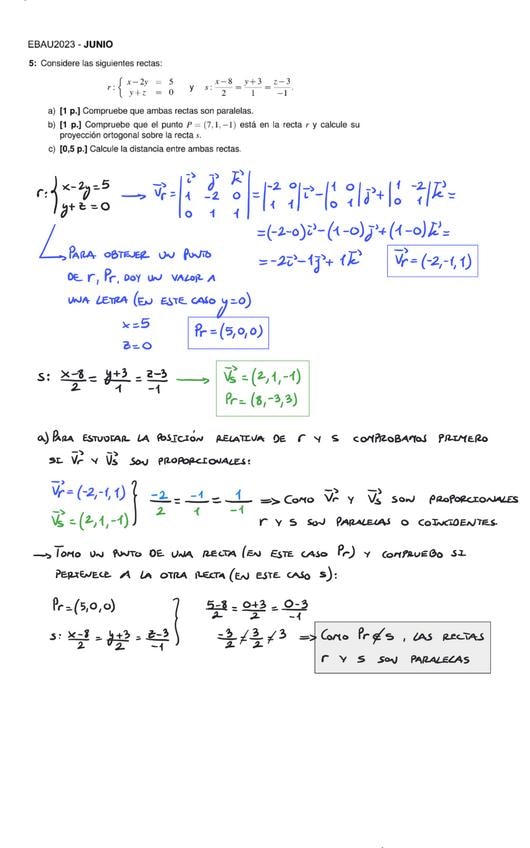 EBAU2023 - JUNIO
5: Considere las siguientes rectas:
r : { x − 2y = 5
y + z = 0 y s : (x−8)/2 = (y+3)/1 = (z−3)/−1.
a) [1 p.] Compruebe que ambas rectas son paralelas.
b) [1 p.] Compruebe que el punto P = (7,1,−1) está en la recta r y calcule su
proyección ortogonal sobre la recta s.
c) [0,5 p.] Calcule la distancia entre ambas rectas.
r: { x−2y=5
y+z=0 → V⃗r = | i⃗ j⃗ k⃗ ; 1 −2 0 ; 0 1 1 | = | −2 0 ; 1 1 | i⃗ − | 1 0 ; 0 1 | j⃗ + | 1 −2 ; 0 1 | k⃗ =
= (−2−0) i⃗ − (1−0) j⃗ + (1−0) k⃗ =
= −2 i⃗ − 1 j⃗ + 1 k⃗ V⃗r = (−2,−1,1)
→ PARA OBTENER UN PUNTO
DE r, Pr, DOY UN VALOR A
UNA LETRA (EN ESTE CASO y=0)
x=5
z=0 Pr=(5,0,0)
s: (x−8)/2 = (y+3)/1 = (z−3)/−1 → V⃗s = (2,1,−1)
Pr = (8,−3,3)
a) PARA ESTUDIAR LA POSICIÓN RELATIVA DE r Y s COMPROBAMOS PRIMERO
SI V⃗r Y V⃗s SON PROPORCIONALES:
V⃗r = (−2,−1,1)
V⃗s = (2,1,−1) } −2/2 = −1/1 = 1/−1 ⇒ COMO V⃗r Y V⃗s SON PROPORCIONALES
r Y s SON PARALELAS O COINCIDENTES.
→ TOMO UN PUNTO DE UNA RECTA (EN ESTE CASO Pr) Y COMPRUEBO SI
PERTENECE A LA OTRA RECTA (EN ESTE CASO s):
Pr=(5,0,0)
s: (x−8)/2 = (y+3)/2 = (z−3)/−1 } (5−8)/2 = (0+3)/2 = (0−3)/−1
−3/2 ≠ 3/2 ≠ 3 ⇒ COMO Pr∉s, LAS RECTAS
r Y s SON PARALELAS